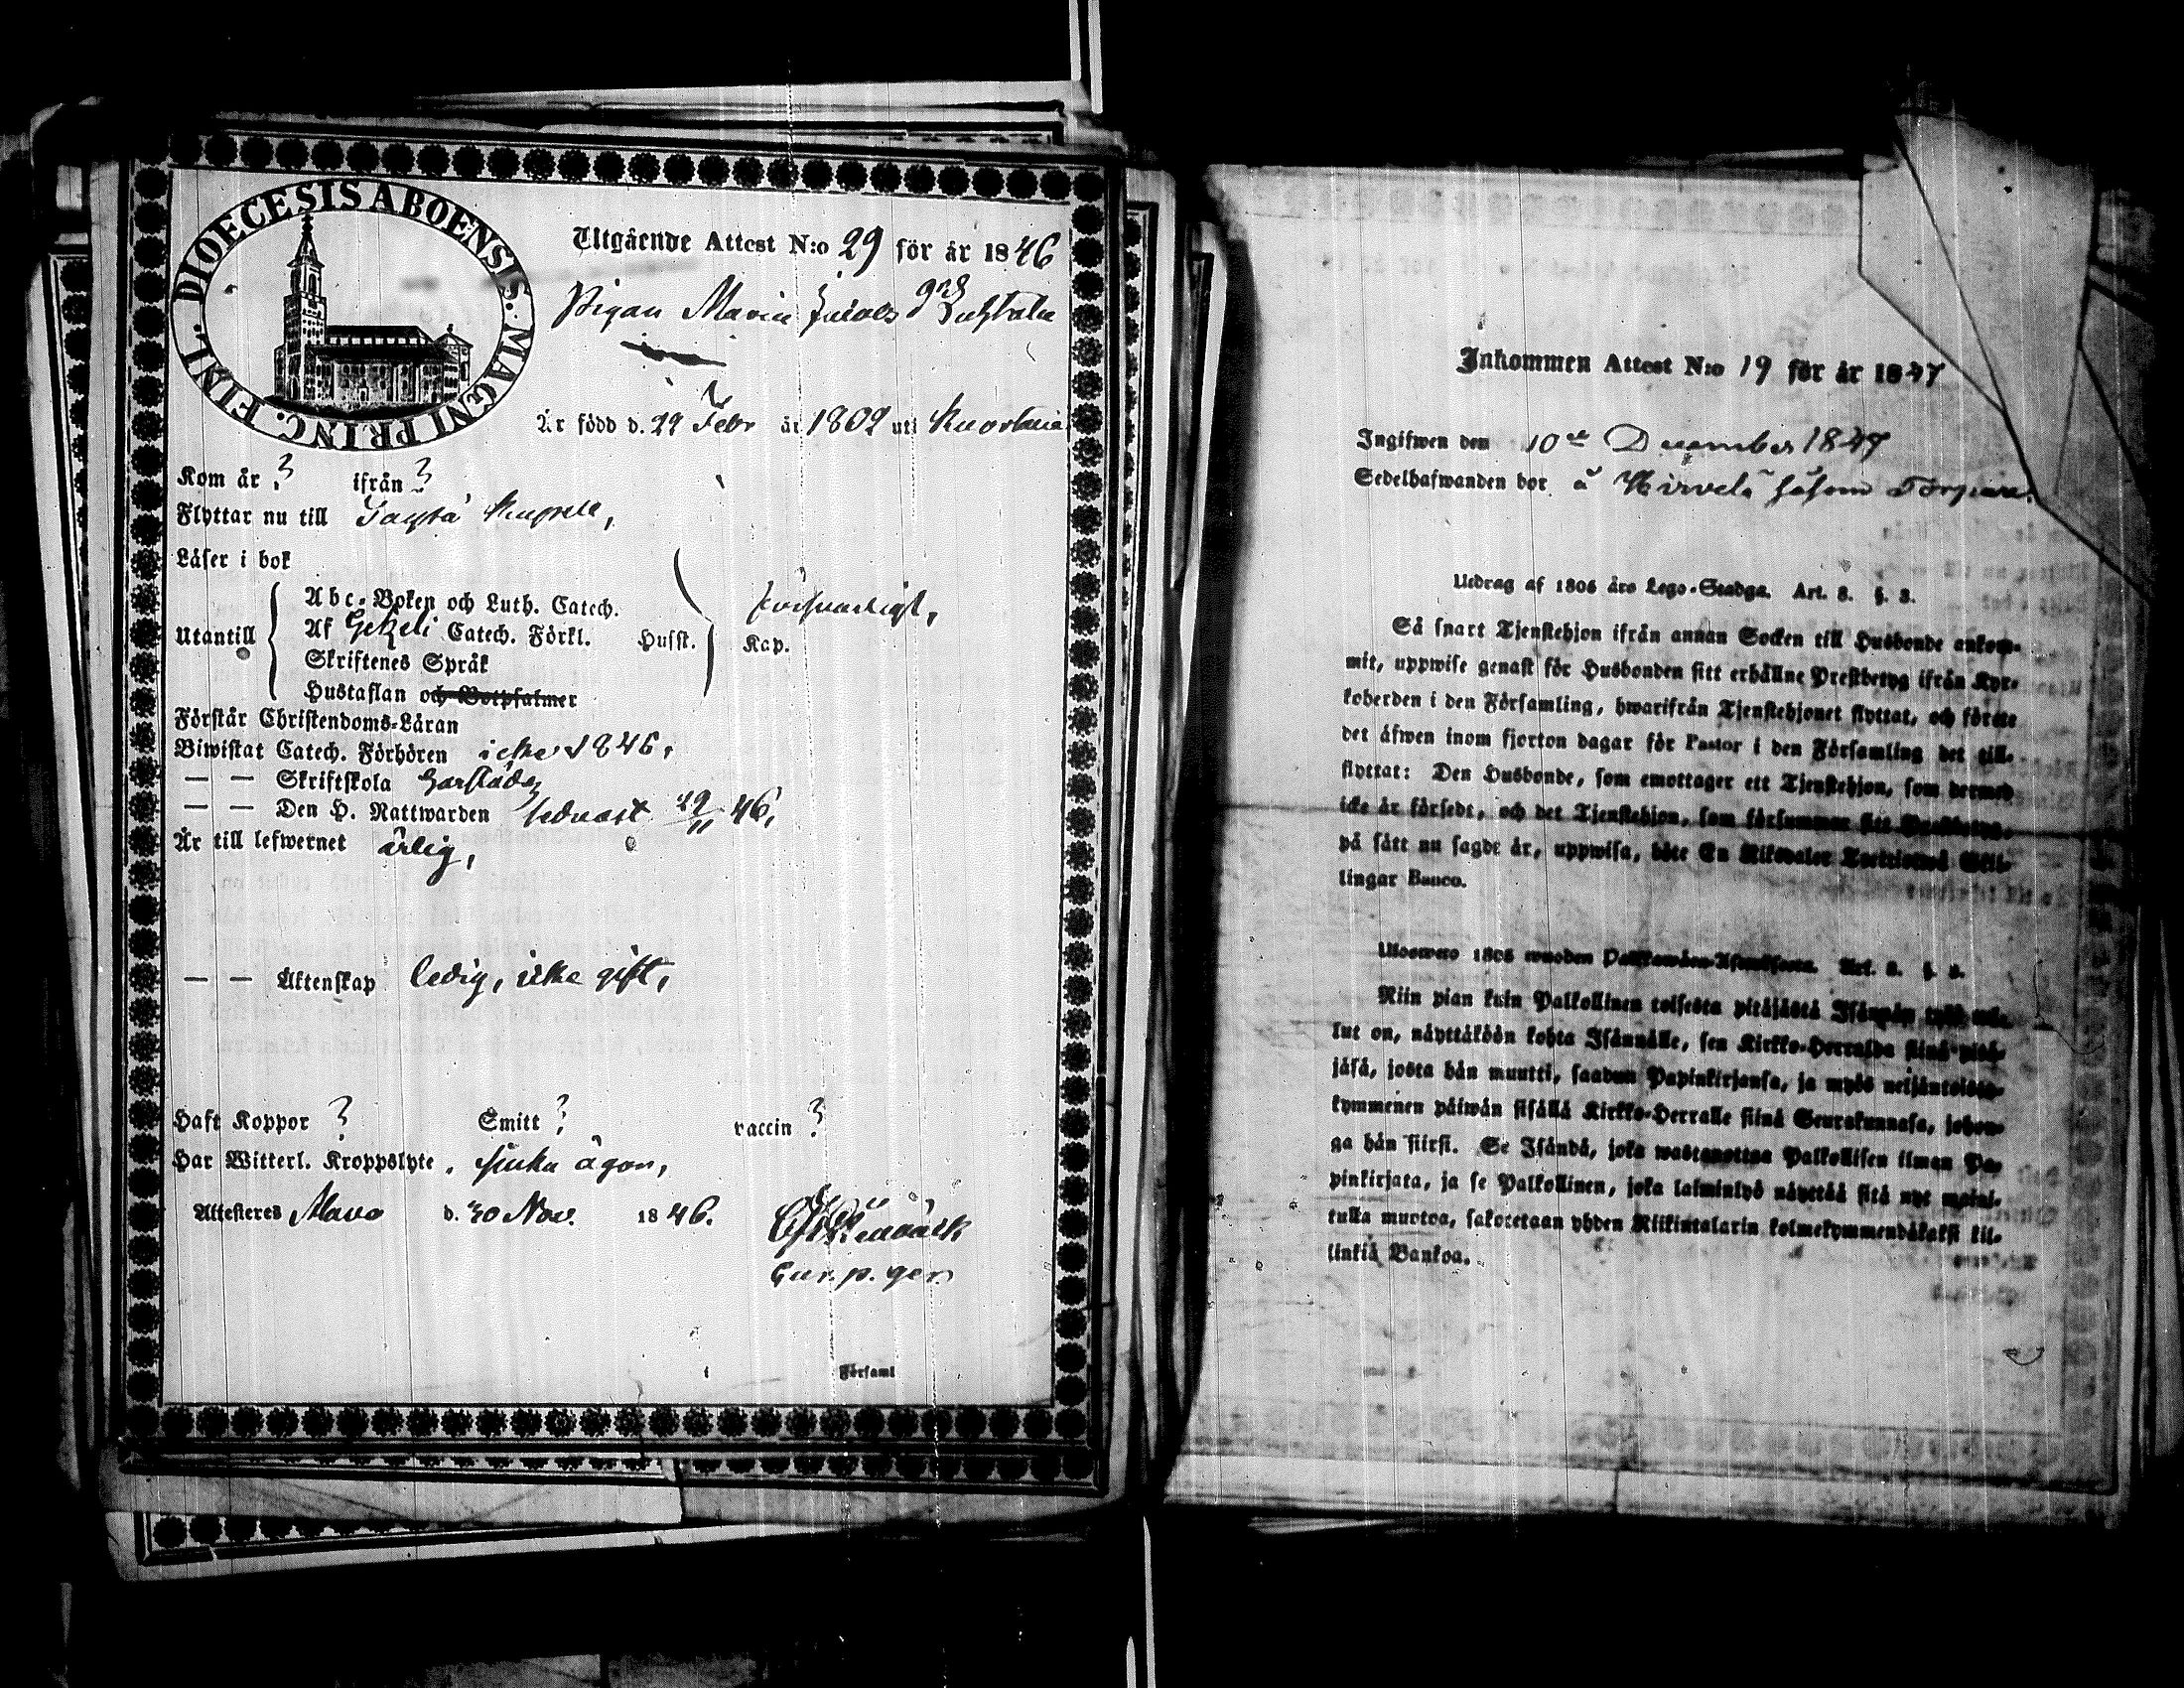 DIOECESIS ABOENSIS. MAGNI PRINC. FINL.
Utgående Attest N:o 29 för år 1846
Pigan Maria
Är född d. 29 Febr år 1802 uti Kuortane
Kom år ? ifrån ?
Flyttar nu till
Läser i bok
Abc-Boken och Luth. Catech. försvarligt,
Utantill Af Gezeli Catech. Förkl. Husst. Kap.
Skriftenes Språk
Hustaflan och Botpsalmer
Förstår Christendoms-Läran
Biwistat Catech. Förhören icke 1846,
— — Skriftskola
— — Den H. Nattwarden sednast 29/11 46,
Är till lefwernet ärlig,
— — Äktenskap ledig, icke gift,
Haft Koppor ? Smitt ? vaccin ?
Har Witterl. Kroppslyte, sjuka ögon,
Attesteras Alavo d. 30 Nov. 1846.
i Församl
Inkommen Attest N:o 19 för år 1847
Ingifwen den 10de December 1847
Sedelhafwanden bor å Hirvelä såsom
Utdrag af 1805 års Lego-Stadga. Art. 8. §. 3.
Så snart Tjenstehjon ifrån annan Socken till Husbonde ankom-
mit, uppwise genast för Husbonden sitt erhållne Prestbetyg ifrån Kyr-
koherden i den Församling, hwarifrån Tjenstehjonet flyttat, och förete
det äfwen inom fjorton dagar för Pastor i den Församling det till-
flyttat: Den Husbonde, som emottager ett Tjenstehjon, som dermed
icke är försedt, och det Tjenstehjon, som försummar sitt Prestbetyg,
på sätt nu sagdt är, uppwisa, böte En Riksdaler Trettiotwå Skil-
lingar Banco.
Ulosweto 1805 wuoden Palkkawäen-Asetuksesta. Art. 8. §. 3.
Niin pian kuin Palkollinen toisesta pitäjästä Isännän tykö tul-
lut on, näyttäköön kohta Isännälle, sen Kirkko-Herralda siinä pitä-
jäsä, josta hän muutti, saadun Papinkirjansa, ja myös neljäntoista-
kymmenen päiwän sisällä Kirkko-Herralle siinä Seurakunnasa, johon-
ga hän siirsi. Se Isändä, joka wastanottaa Palkollisen ilman Pa-
pinkirjata, ja se Palkollinen, joka laiminlyö näyttää sitä nyt maini-
tulla muotoa, sakotetaan yhden Riikintalarin kolmekymmendäkaksi kil-
linkiä Bankoa.